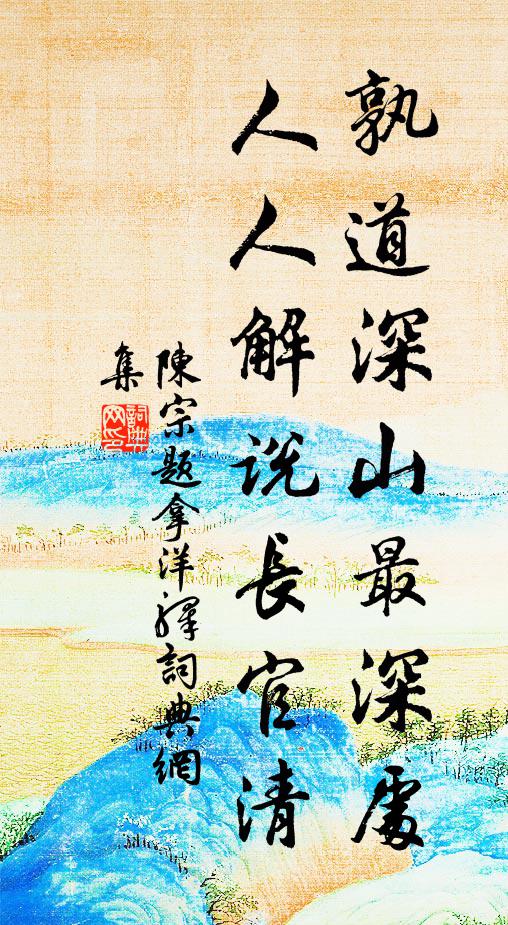 孰道深山最深處
人人解說長官清
陳宗題拿洋驛詞典網
集
詞典
网印